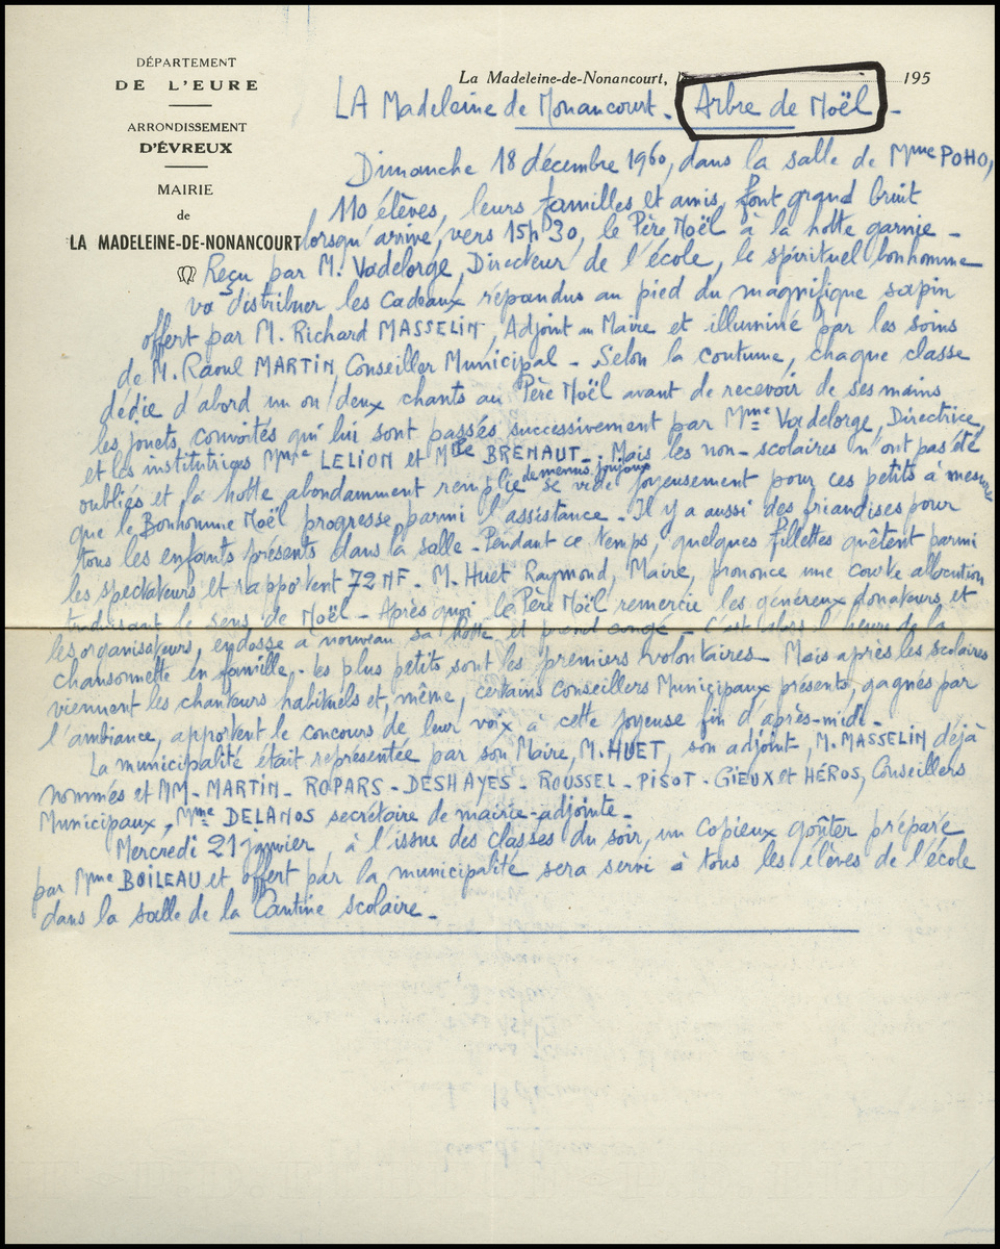 DÉPARTEMENT
DE L'EURE
ARRONDISSEMENT
D'ÉVREUX
MAIRIE
de
LA MADELEINE-DE-NONANCOURT
La Madeleine-de-Nonancourt, 195
LA Madeleine de Nonancourt - Arbre de Noël -
Dimanche 18 décembre 1960, dans la salle de Mme POHO,
110 élèves, leurs familles et amis, font grand bruit
lorsqu'arrive, vers 15h30, le Père Noël à la hotte garnie -
Reçu par M. Vadelorge, Directeur de l'école, le spirituel bonhomme
va distribuer les cadeaux répandus au pied du magnifique sapin
offert par M. Richard MASSELIN, Adjoint au Maire et illuminé par les soins
de M. Raoul MARTIN, Conseiller Municipal - Selon la coutume, chaque classe
dédie d'abord un ou deux chants au Père Noël avant de recevoir de ses mains
les jouets convoités qui lui sont passés successivement par Mme Vadelorge, Directrice,
et les institutrices Mme LELION et Mlle BRENAUT -. Mais les non-scolaires n'ont pas été
oubliés et la hotte abondamment remplie de menus joujoux se vide joyeusement pour ces petits à mesure
que le Bonhomme Noël progresse parmi l'assistance - Il y a aussi des friandises pour
tous les enfants présents dans la salle - Pendant ce temps, quelques fillettes quêtent parmi
les spectateurs et rapportent 72 NF - M. Huet Raymond, Maire, prononce une courte allocution
traduisant le sens de Noël - Après quoi le Père Noël remercie les généreux donateurs et
les organisateurs, endosse à nouveau sa hotte et prend congé - C'est alors l'heure de la
chansonnette en famille - Les plus petits sont les premiers volontaires - Mais après les scolaires
viennent les chanteurs habituels et, même, certains conseillers Municipaux présents, gagnés par
l'ambiance, apportent le concours de leur voix à cette joyeuse fin d'après-midi -
La municipalité était représentée par son Maire, M. HUET, son adjoint, M. MASSELIN déjà
nommés et MM - MARTIN - ROPARS - DESHAYES - ROUSSEL - PISOT - GIEUX et HÉROS, Conseillers
Municipaux, Mme DELANOS secrétaire de mairie-adjointe -
Mercredi 21 janvier, à l'issue des classes du soir, un copieux goûter préparé
par Mme BOILEAU et offert par la municipalité sera servi à tous les élèves de l'école
dans la salle de la Cantine scolaire -